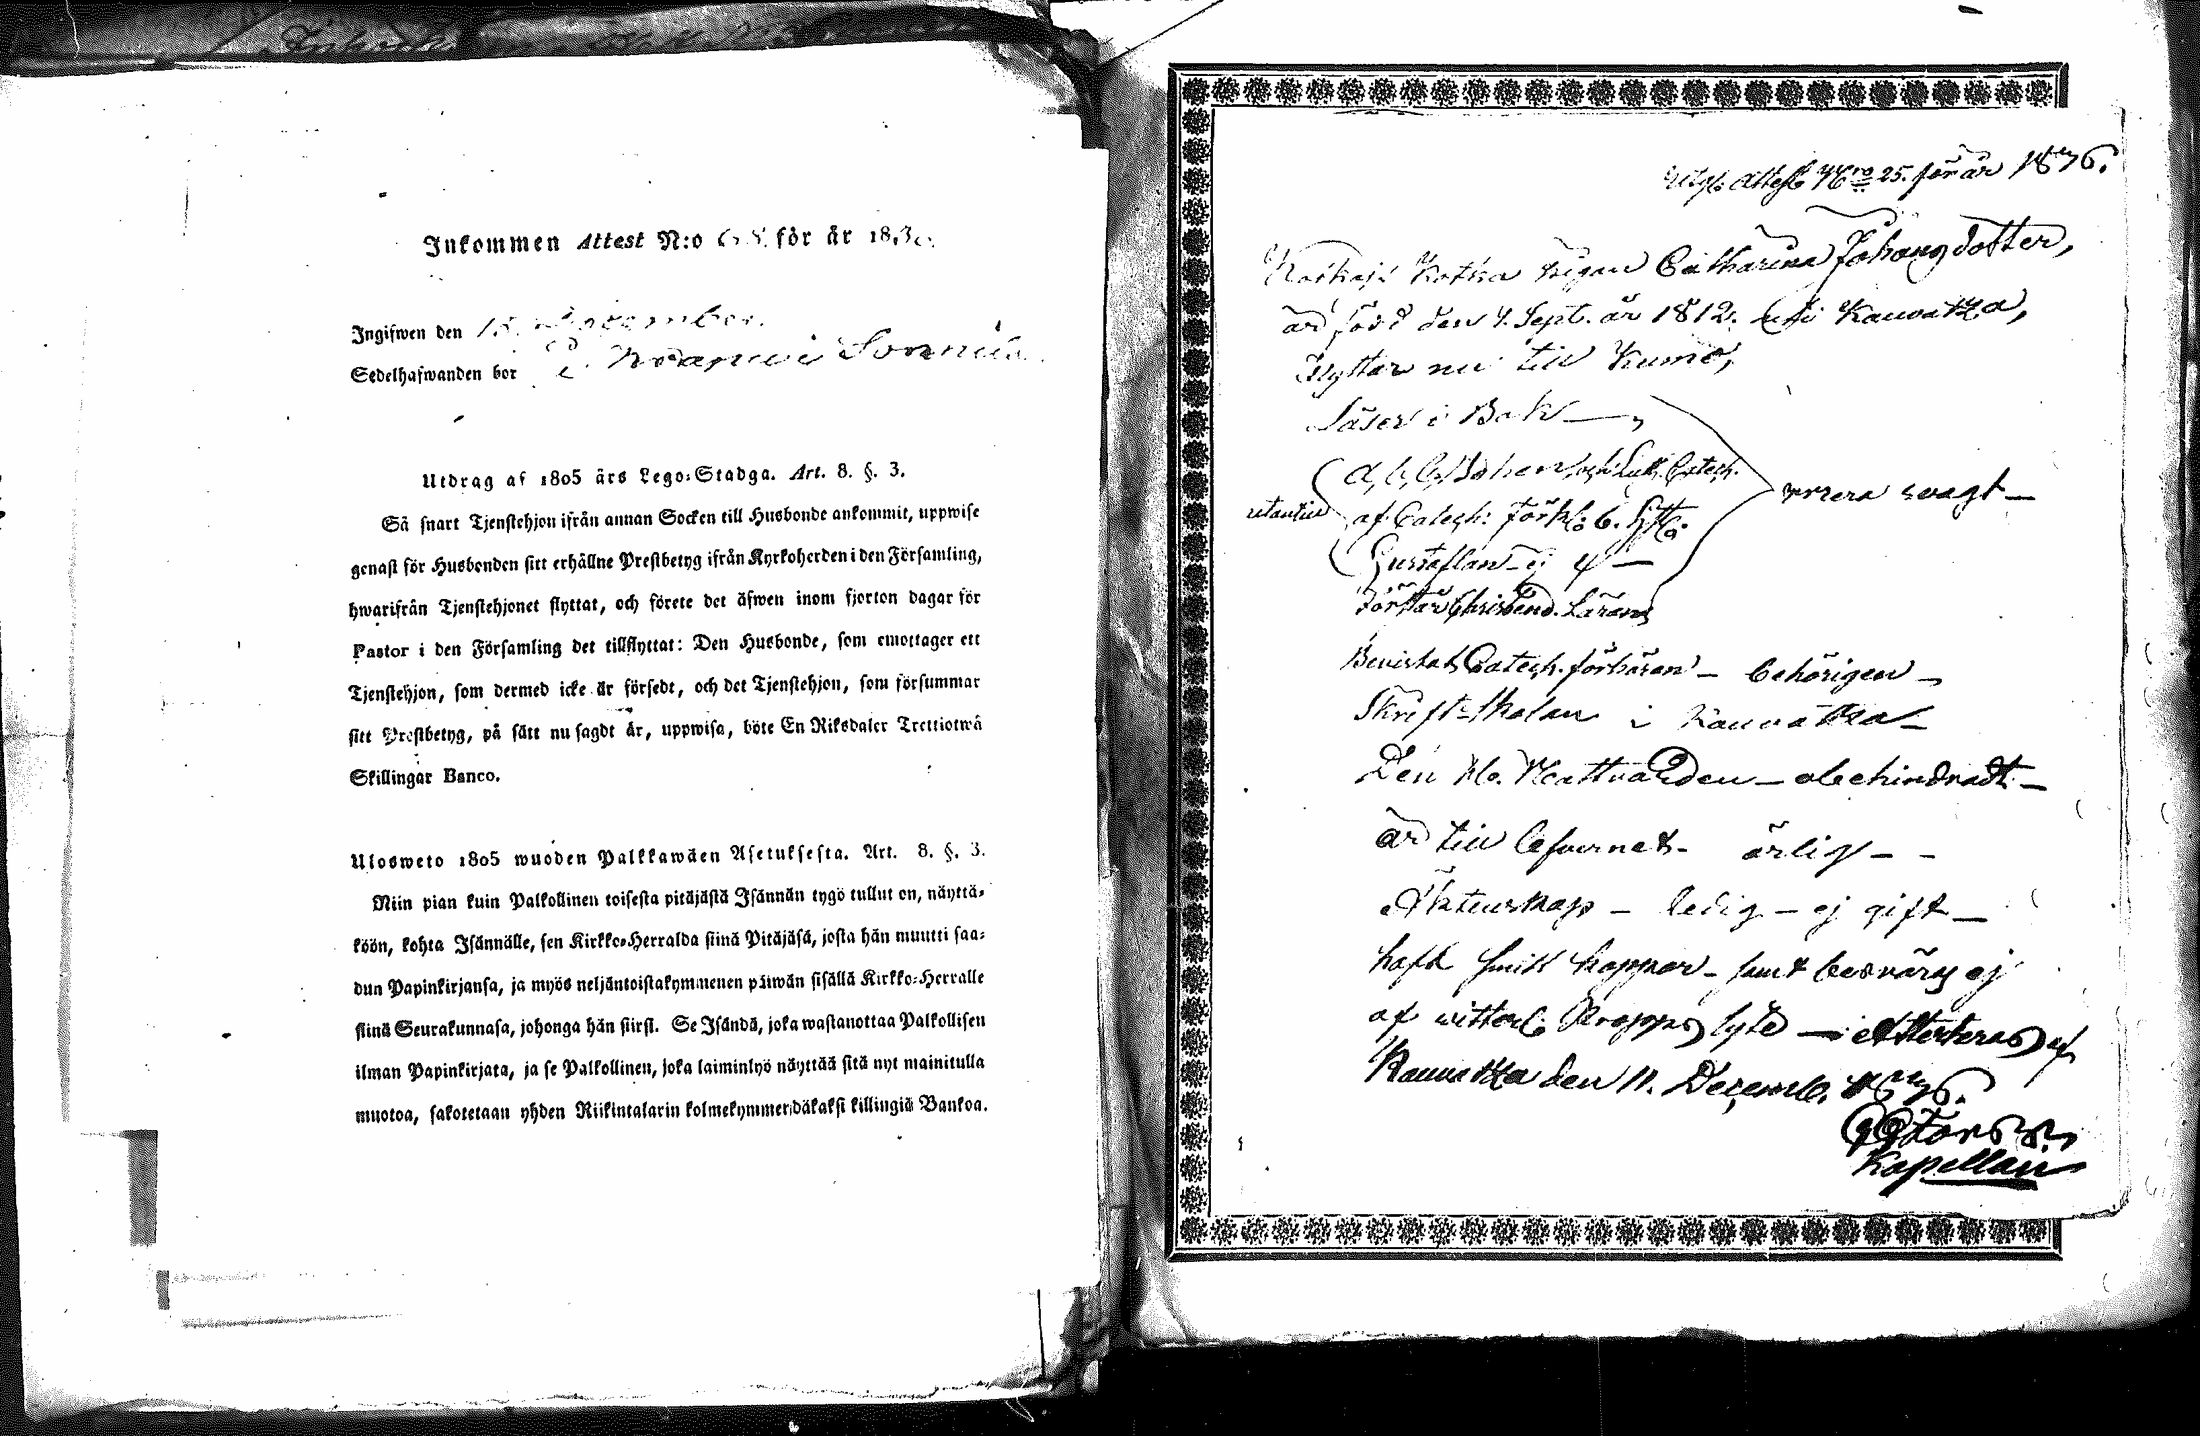 Inkommen Attest N:o 68 för år 183
Ingifwen den 15 December.
Sedelhafwanden bor i Sonnila
Utdrag af 1805 års Lego-Stadga. Art. 8. §. 3.
Så snart Tjenstehjon ifrån annan Socken till Husbonde ankommit, uppwise
genast för Husbonden sitt erhållne Prestbetyg ifrån Kyrkoherden i den Församling,
hwarifrån Tjenstehjonet flyttat, och förete det äfwen inom fjorton dagar för
Pastor i den Församling det tillflyttat: Den Husbonde, som emottager ett
Tjenstehjon, som dermed icke är försedt, och det Tjenstehjon, som försummar
sitt Prestbetyg, på sätt nu sagdt är, uppwisa, böte En Riksdaler Trettiotwå
Skillingar Banco.
Ulosweto 1805 wuoden Palkkawäen Asetuksesta. Art. 8. §. 3.
Niin pian kuin Palkollinen toisesta pitäjästä Isännän tygö tullut on, näyttä-
köön, kohta Isännälle, sen Kirkko-Herralda siinä Pitäjäsä, josta hän muutti saa-
dun Papinkirjansa, ja myös neljäntoistakymmenen päiwän sisällä Kirkko-Herralle
siinä Seurakunnasa, johonga hän siirsi. Se Isändä, joka wastanottaa Palkollisen
ilman Papinkirjata, ja se Palkollinen, joka laiminlyö näyttää sitä nyt mainitulla
muotoa, sakotetaan yhden Riikintalarin kolmekymmendäkaksi killingiä Bankoa.
Utg. Attest Nro 25. för år 1836.
Kotka pigan Catharina Johansdotter,
är född den 4. Sept. år 1812. uti Kauvatza,
flyttar nu till Kumo,
Läser i Bok —,
A, b, c, Boken, och Luth. Catech.
utantill af Catech. Förkl. 6. Hft. svagt —
Gustaflan — ej —
Förstår Christend. Läran
Bevistat Catech. förhören — behörigen —
Skrift-skolan i Kauvatza —
Den Hel. Nattvarden — obehindradt —
är till lefvernet — ärlig — —
Äktenskap — ledig — ej gift —
haft koppor — samt besväras ej
af Kropps lyte — Attesteras af
Kauvatza den 11. Decemb. 1836.
Kapellan